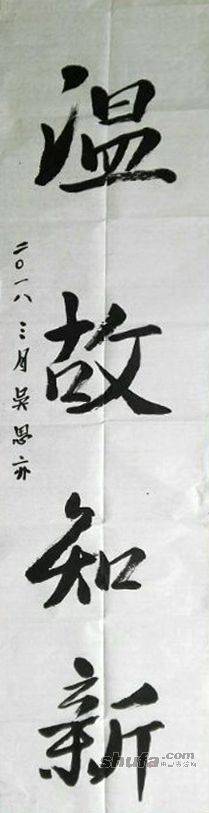 温故知新
二〇一八三月吴思亦
shufa.com